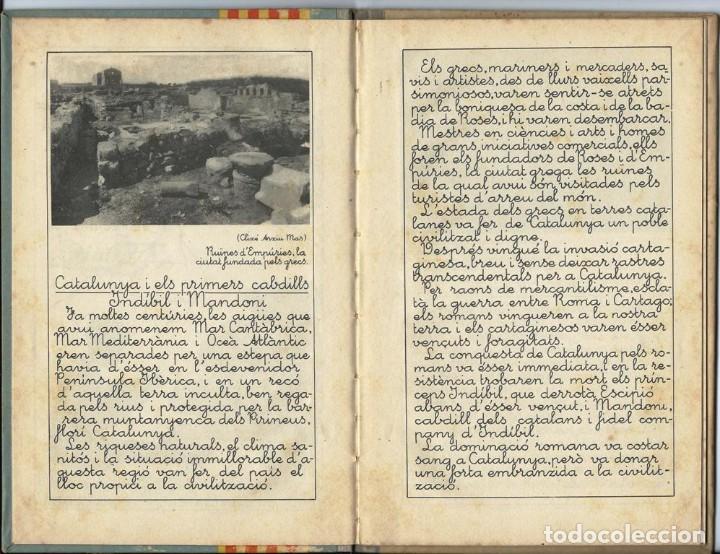 (Clixé Arxiu Mas)
Ruïnes d'Empúries, la
ciutat fundada pels grecs.
Catalunya i els primers cabdills
Indíbil i Mandoni
Fa moltes centúries, les aigües que
avui anomenem Mar Cantàbrica,
Mar Mediterrània i Oceà Atlàntic
eren separades per una estepa que
havia d'ésser en l'esdevenidor
Península Ibèrica, i en un recó
d'aquella terra inculta, ben rega-
da pels rius i protegida per la bar-
rera muntanyenca dels Pirineus,
florí Catalunya.
Les riqueses naturals, el clima sa-
nitós i la situació immillorable d'a-
questa regió van fer del país el
lloc propici a la civilització.
Els grecs, mariners i mercaders, sa-
vis i artistes, des de llurs vaixells par-
simoniosos, varen sentir-se atrets
per la boniquesa de la costa i de la ba-
dia de Roses, i hi varen desembarcar.
Mestres en ciències i arts i homes
de grans iniciatives comercials, ells
foren els fundadors de Roses i d'Em-
púries, la ciutat grega les ruïnes
de la qual avui són visitades pels
turistes d'arreu del món.
L'estada dels grecs en terres cata-
lanes va fer de Catalunya un poble
civilitzat i digne.
Després vingué la invasió carta-
ginesa, breu i sense deixar rastres
transcendentals per a Catalunya.
Per raons de mercantilisme, escla-
tà la guerra entre Roma i Cartago;
els romans vingueren a la nostra
terra i els cartaginesos varen ésser
vençuts i foragitats.
La conquesta de Catalunya pels ro-
mans va ésser immediata, i en la re-
sistència trobaren la mort els prín-
ceps Indíbil, que derrotà Escipió
abans d'ésser vençut, i Mandoni,
cabdill dels catalans i fidel com-
pany d'Indíbil.
La dominació romana va costar
sang a Catalunya, però va donar
una forta embranzida a la civilit-
zació.
todocoleccion.net